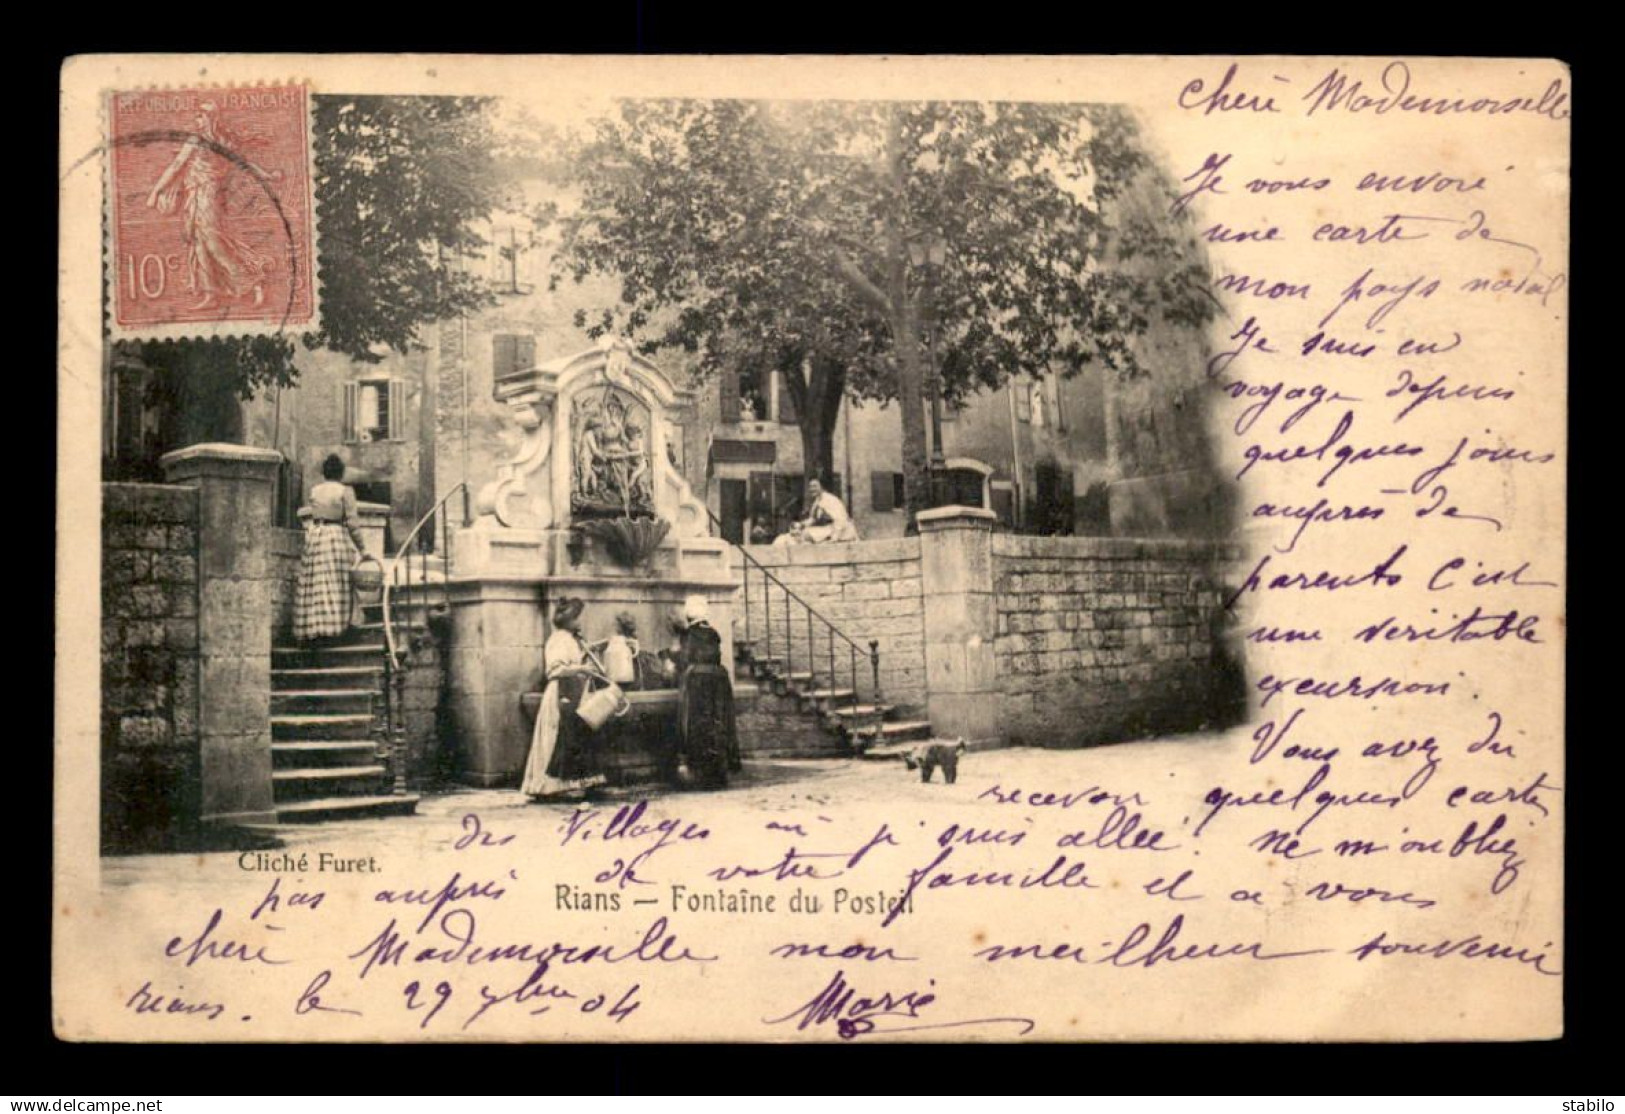 RÉPUBLIQUE FRANÇAISE
10c
Cheré Mademoiselle
Je vous envoié
une carte de
mon pays natal
Je suis en
voyage depuis
quelques jours
auprès de
parents C'est
une veritable
excursion.
Vous avez du
recevoir quelques cartes
des Villages où j'suis allée. Ne m'oubliez
pas auprès de votre famille et a vous
cheré Mademoiselle mon meilheur souvenir
rians. le 29 7bre 04 Marie
Cliché Furet.
Rians — Fontaîne du Posteil
stabilo